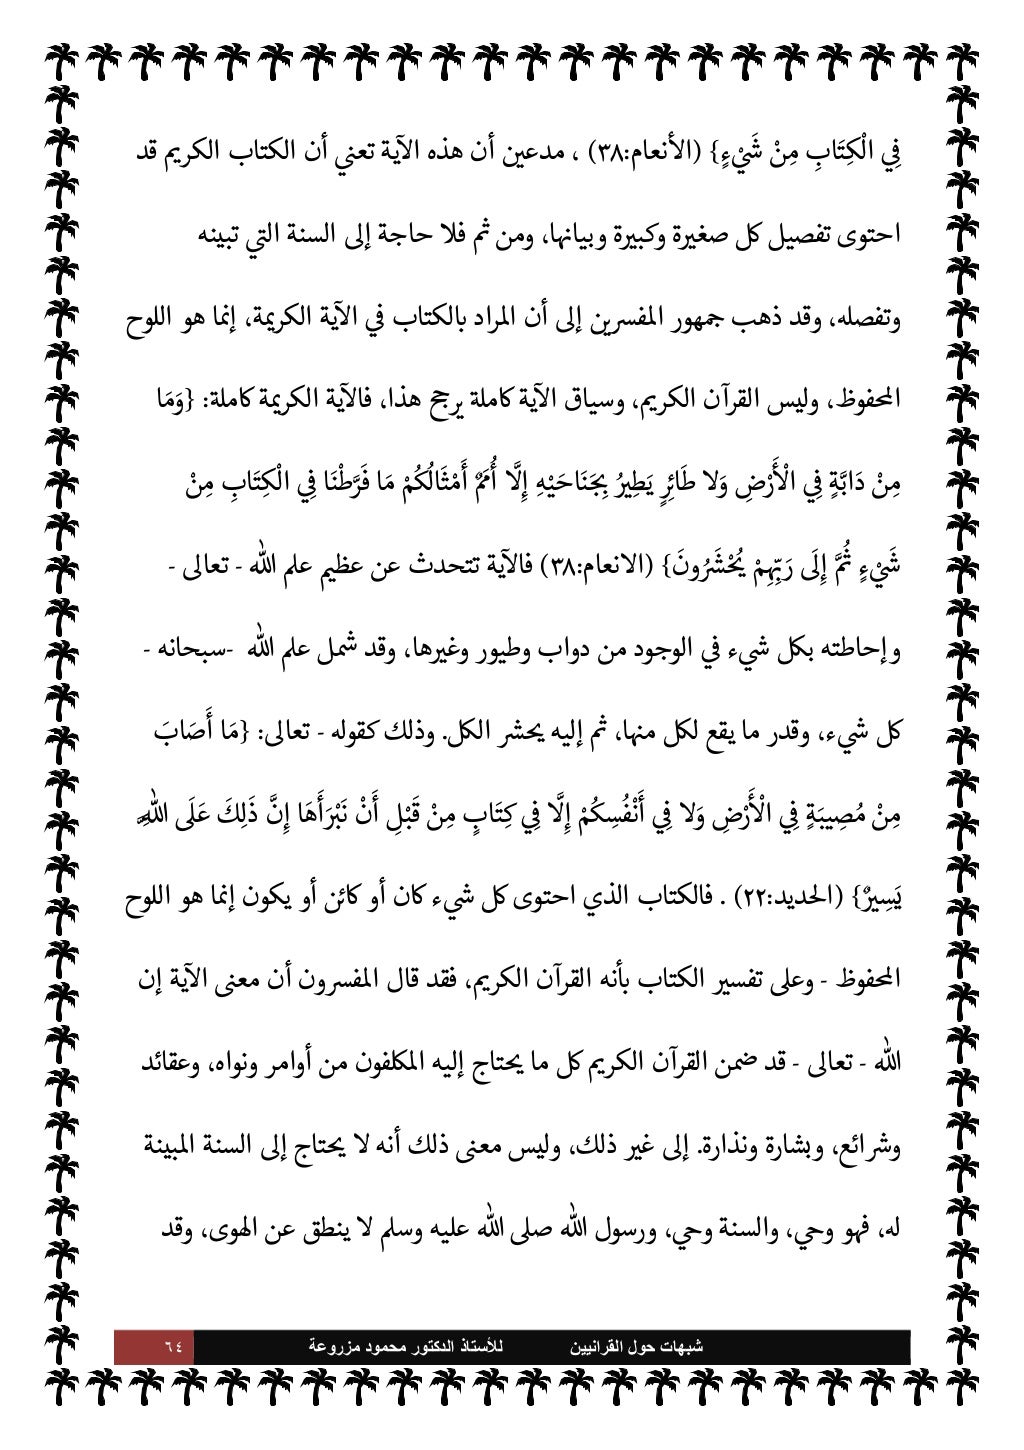 فِي الْكِتَابِ مِنْ شَيْءٍ} (الأنعام:٣٨) ، مدعين أن هذه الآية تعني أن الكتاب الكريم قد
احتوى تفصيل كل صغيرة وكبيرة وبيانها، ومن ثم فلا حاجة إلى السنة التي تبينه
وتفصله، وقد ذهب جمهور المفسرين إلى أن المراد بالكتاب في الآية الكريمة، إنما هو اللوح
المحفوظ، وليس القرآن الكريم، وسياق الآية كاملة يرجح هذا، فالآية الكريمة كاملة: {وَمَا
مِنْ دَابَّةٍ فِي الْأَرْضِ وَلا طَائِرٍ يَطِيرُ بِجَنَاحَيْهِ إِلَّا أُمَمٌ أَمْثَالُكُمْ مَا فَرَّطْنَا فِي الْكِتَابِ مِنْ
شَيْءٍ ثُمَّ إِلَى رَبِّهِمْ يُحْشَرُونَ} (الانعام:٣٨) فالآية تتحدث عن عظيم علم الله - تعالى -
وإحاطته بكل شيء في الوجود من دواب وطيور وغيرها، وقد شمل علم الله -سبحانه -
كل شيء، وقدر ما يقع لكل منها، ثم إليه يحشر الكل. وذلك كقوله - تعالى: {مَا أَصَابَ
مِنْ مُصِيبَةٍ فِي الْأَرْضِ وَلا فِي أَنْفُسِكُمْ إِلَّا فِي كِتَابٍ مِنْ قَبْلِ أَنْ نَبْرَأَهَا إِنَّ ذَلِكَ عَلَى اللَّهِ
يَسِيرٌ} (الحديد:٢٢) . فالكتاب الذي احتوى كل شيء كان أو كائن أو يكون إنما هو اللوح
المحفوظ - وعلى تفسير الكتاب بأنه القرآن الكريم، فقد قال المفسرون أن معنى الآية إن
الله - تعالى - قد ضمن القرآن الكريم كل ما يحتاج إليه المكلفون من أوامر ونواه، وعقائد
وشرائع، وبشارة ونذارة. إلى غير ذلك، وليس معنى ذلك أنه لا يحتاج إلى السنة المبينة
له، فهو وحي، والسنة وحي، ورسول الله صلى الله عليه وسلم لا ينطق عن الهوى، وقد
شبهات حول القرانيين للأستاذ الدكتور محمود مزروعة ٦٤